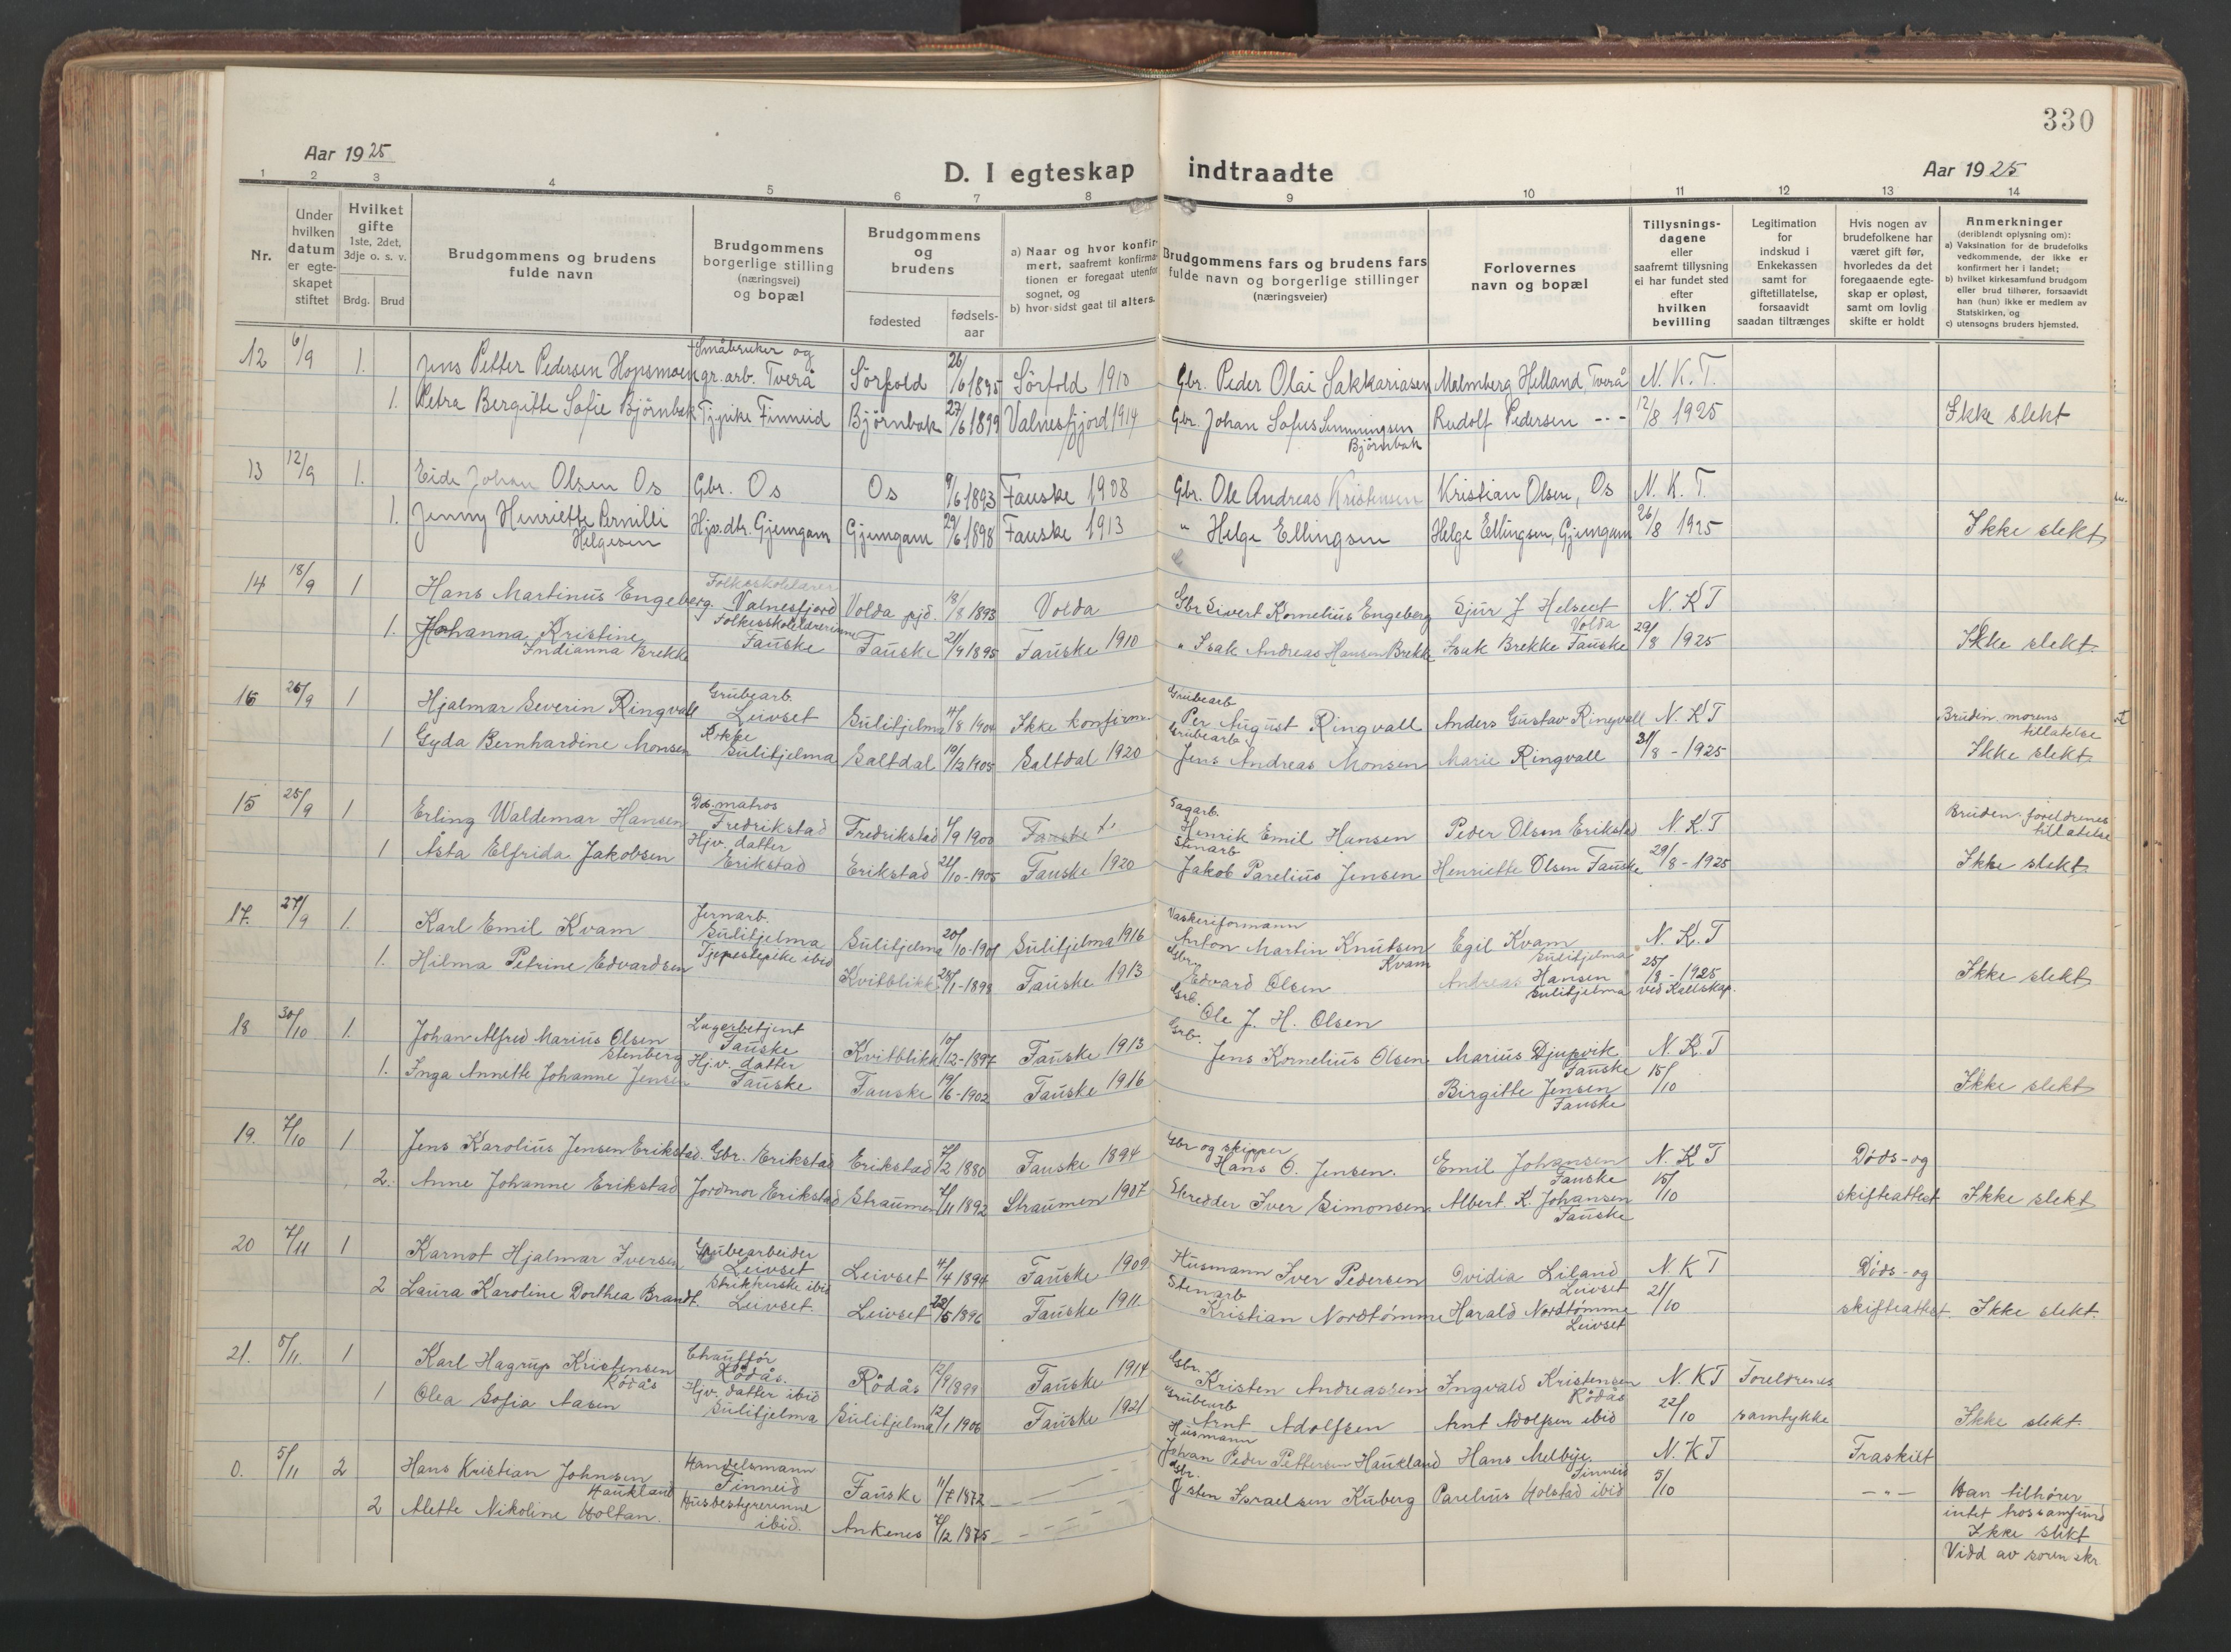 330
Aar 1925
D. I egteskap indtraadte
Aar 1925
1 2 3 4 5 6 7 8 9 10 11 12 13 14
Nr.
Under hvilken datum er egte-skapet stiftet
Hvilket gifte 1ste, 2det, 3dje o. s. v.
Brdg. Brud
Brudgommens og brudens fulde navn
Brudgommens borgerlige stilling (næringsvei) og bopæl
Brudgommens og brudens
fødested
fødsels-aar
a) Naar og hvor konfir-mert, saafremt konfirma-tionen er foregaat utenfor sognet, og
b) hvor sidst gaat til alters.
Brudgommens fars og brudens fars fulde navn og borgerlige stillinger (næringsveier)
Forlovernes navn og bopæl
Tillysnings-dagene eller saafremt tillysning ei har fundet sted efter hvilken bevilling
Legitimation for indskud i Enkekassen samt for giftetillatelse, forsaavidt saadan tiltrænges
Hvis nogen av brudefolkene har været gift før, hvorledes da det foregaaende egte-skap er opløst, samt om lovlig skifte er holdt
Anmerkninger (deriblandt oplysning om):
a) Vaksination for de brudefolks vedkommende, der ikke er konfirmert her i landet;
b) hvilket kirkesamfund brudgom eller brud tilhører, forsaavidt han (hun) ikke er medlem av Statskirken, og
c) utensogns bruders hjemsted.
12 6/9 1. Jens Petter Pedersen Hopsmoen Småbruker og gr.arb. Tverå Sörfold 26/6 1895 Sörfold 1910 Gbr. Peder Olai Sakkariasen Malmberg Helland, Tverå N. K. T.
1. Petra Bergitte Sofie Björnbak Tj.pike Finneid Björnbak 27/6 1899 Valnesfjord 1914 Gbr. Johan Sofus Simmingsen Björnbak Rudolf Pedersen -"- 12/8 1925 Ikke slekt
13 12/9 1. Eide Johan Olsen Os Gbr. Os Os 9/6 1893 Fauske 1908 Gbr. Ole Andreas Kristensen Kristian Olsen, Os N. K. T.
1. Jenny Henriette Pernilli Helgesen Hjv.dtr. Gjemgam Gjemgam 29/6 1898 Fauske 1913 " Helge Ellingsen Helge Ellingsen, Gjemgam 26/8 1925 Ikke slekt
14 18/9 1 Hans Martinus Engeberg. Folkeskolelærer Valnesfjord Volda pjd. 18/8 1893 Volda Gbr Sivert Kornelius Engeberg Sjur J Helset Volda N. K T
1. Johanna Kristine Indianna Brekke Folkeskolelærerinne Fauske Fauske 21/9 1895 Fauske 1910 " Isak Andreas Hansen Brekk Isak Brekke Fauske 29/8 1925 Ikke slekt.
16 26/9 1 Hjalmar Severin Ringvall Grubearb. Leivset Sulitjelma 4/8 1904 Ikke konfirm Grubearb Per August Ringvall Anders Gustav Ringvall N. K T Bruden morens tillatelse
1 Gyda Bernhardine Monsen Kokke Sulitjelma Saltdal 19/12 1905 Saltdal 1920 Grubearb Jens Andreas Monsen Marie Ringvall 31/8 - 1925 Ikke slekt.
15 25/9 1 Erling Waldemar Hansen matros Fredrikstad Fredrikstad 4/9 1900 Fauske Sagarb. Henrik Emil Hansen Peder Olsen Erikstad N. K. T Bruden foreldrenes tillatelse
1 Asta Elfrida Jakobsen Hjv. datter Erikstad Erikstad 24/10-1905 Fauske 1920 Stenarb Jakob Parelius Jensen Henriette Olsen Fauske 29/8 - 1925 Ikke slekt.
17. 27/9 1. Karl Emil Kvam Jernarb. Sulitjelma Sulitjelma 20/10-1901 Sulitjelma 1916 Vaskeriformann Anton Martin Knutsen Kvam Egil Kvam Sulitjelma N. K. T
1. Hilma Petrine Edvardsen Tjenestepike ibid Kvitblikk 24/1-1898 Fauske 1913 Gbr. Edvard Olsen Andreas Hansen Sulitjelma 25/8 - 1925 Ikke slekt
18 30/10 1. Johan Alfred Marius Olsen Stenberg Lagerbetjent Fauske Kvitblikk 10/12-1897 Fauske 1913 Grb. Ole J. H. Olsen Marius Djupvik Fauske N. K. T
1. Inga Annette Johanne Jensen Hj.v. datter Fauske Fauske 19/6-1902 Fauske 1916 Grb. Jens Kornelius Olsen Birgitte Jensen Fauske 15/10 Ikke slekt
19. 7/10 1 Jens Karolius Jensen Erikstad. Gbr. Erikstad Erikstad 7/2 1880 Fauske 1894 Gbr og skipper Hans O. Jensen. Emil Johansen Fauske N. K T Døds- og
2. Anne Johanne Erikstad Jordmor Erikstad Straumen 4/11 1892 Straumen 1907 Steredder Iver Simonsen Albert K. Johansen Fauske 15/10 skifteattest Ikke slekt
20 7/11 1 Karnot Hjalmar Iversen Grubearbeider Leivset Leivset 4/4 1894 Fauske 1909 Husmann Iver Pedersen Ovidia Liland Leivset N. K T Døds- og
2 Laura Karoline Dorthea Brandt. Strikkerske ibid Leivset. Leivset 22/5 1896 Fauske 1911 Stenarb Kristian Nordtømme Harald Nordtømme Leivset 21/10 skifteattest. Ikke slekt.
21. 5/11. 1 Karl Hagrup Kristensen Rödås Chauffør Rödås. Rödås 12/9 1899 Fauske 1914 Gbr. Kristen Andreassen Ingvald Kristensen Rödås N. KT Foreldrenes
1 Olea Sofia Aasen Hjv. datter ibid Sulitjelma Sulitjelma 12/1 1906 Fauske 1921 Grubearb Arnt Adolfsen Arnt Adolfsen ibid 22/10 samtykke Ikke slekt.
0. 5/11 2 Hans Kristian Johnsen Haukland Handelsmann Finneid Fauske 11/7 1872 Husmann Johan Peder Pettersen Haukland Hans Melbye Finneid N. KT Fraskilt
2 Alette Nikoline Holtan. Husbestyrerinne ibid. Ankenes 4/12 1875 Gbr. Østen Israelsen Kuberg Parelius Holstad ibid 5/10 -"- Han tilhører
intet trossamfund
Ikke slekt
Vidd av soren skr